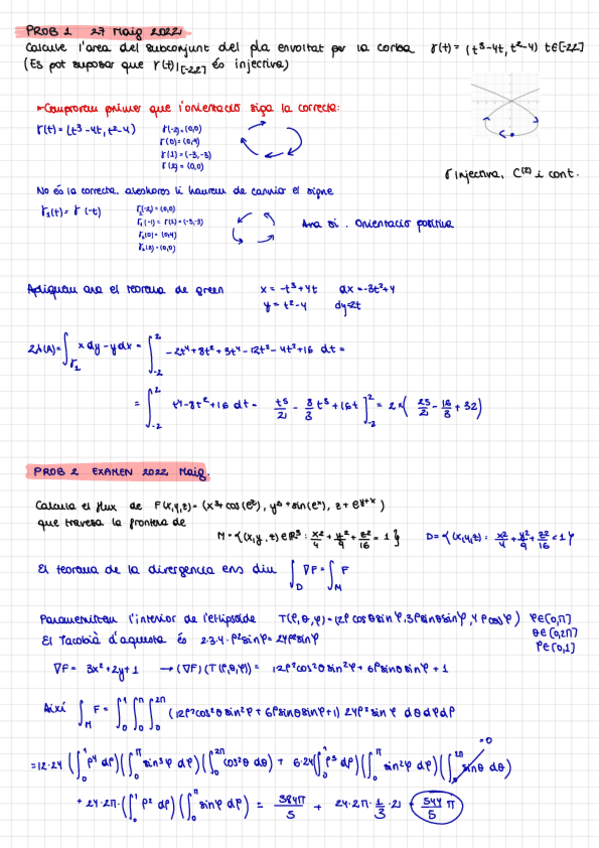 PROB 1 27 Maig 2022
Calcule l'area del subconjunt del pla envoltat per la corba γ(t) = (t³-4t, t²-4) t∈[-2,2]
(Es pot suposar que γ(t)|[-2,2] és injectiva)
→Comprovem primer que l'orientació siga la correcta:
γ(t) = (t³-4t, t²-4)
γ(-2) = (0,0)
γ(0) = (0,4)
γ(1) = (-3,-3)
γ(2) = (0,0)
γ injectiva, C⁽²⁾ i cont.
No és la correcta, aleshores li haurem de canviar el signe
γ₁(t) = γ(-t)
γ₁(-2) = (0,0)
γ₁(-1) = γ(1) = (-3,-3)
γ₁(0) = (0,4)
γ₁(2) = (0,0)
Ara si. Orientació positiva
Apliquem ara el teorema de green
x = -t³+4t dx = -3t²+4
y = t²-4 dy=2t
2λ(A) = ∫γ₁ x dy - y dx = ∫₋₂² -2t⁴+8t²+3t⁴-12t²-4t²+16 dt =
= ∫₋₂² t⁴-8t²+16 dt = t⁵/5 - 8/3 t³ + 16t ]₋₂² = 2·( 25/5 - 16/3 + 32)
PROB 2 EXAMEN 2022 Maig.
Calcula el flux de F(x,y,z) = (x³+cos(e²), y²+sin(eˣ), z+e^(y+x))
que travesa la frontera de
M = {(x,y,z)∈ℝ³: x²/4 + y²/9 + z²/16 = 1} D = {(x,y,z): x²/4 + y²/9 + z²/16 < 1}
El teorema de la divergència ens diu ∫D ∇F = ∫M F
Parametritzem l'interior de l'el·lipsoide T(ρ,θ,φ) = (2ρ cosθ sinφ, 3ρ sinθ sinφ, 4ρ cosφ) φ∈[0,π]
θ∈[0,2π]
ρ∈[0,1]
El Jacobià d'aquesta és 2·3·4·ρ² sinφ = 24ρ² sinφ
∇F = 3x²+2y+1 → (∇F)(T(ρ,θ,φ)) = 12ρ²cos²θ sin²φ + 6ρ sinθ sinφ + 1
Així ∫M F = ∫₀¹ ∫₀^π ∫₀^2π (12ρ²cos²θ sin²φ + 6ρ sinθ sinφ + 1) 24ρ² sinφ dθ dφ dρ
= 12·24 (∫₀¹ ρ⁴ dρ)(∫₀^π sin³φ dφ)(∫₀^2π cos²θ dθ) + 6·24(∫₀¹ ρ³ dρ)(∫₀^π sin²φ dφ)(∫₀^2π sinθ dθ) =0
+ 24·2π·(∫₀¹ ρ² dρ)(∫₀^π sinφ dφ) = 384π/5 + 24·2π·1/3·2 = 544/5 π